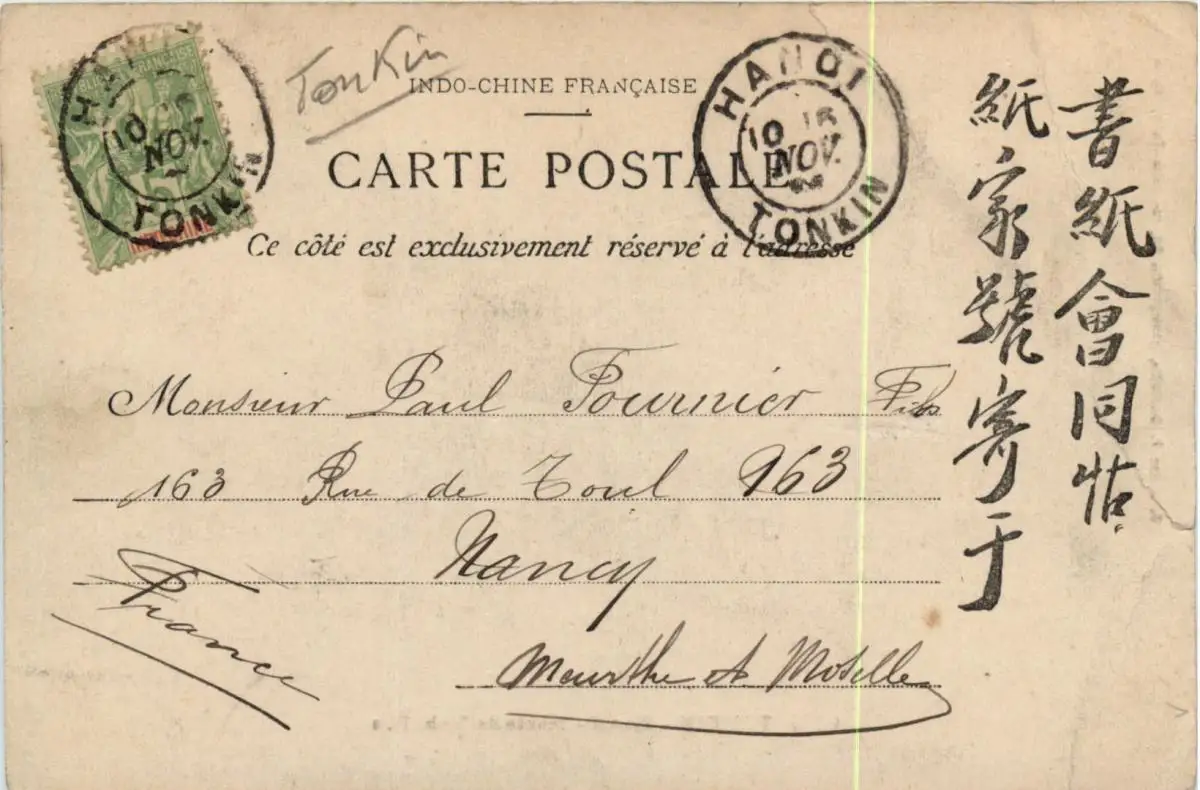 Tonkin
INDO-CHINE FRANÇAISE
CARTE POSTALE
Ce côté est exclusivement réservé à l'adresse
HANOI
10 NOV.
TONKIN
HANOI
10
NOV.
TONKIN
Monsieur Paul Fournier Fils
163 Rue de Toul 163
Nancy
France
Meurthe et Moselle
書紙會同帖
紙家號寄于